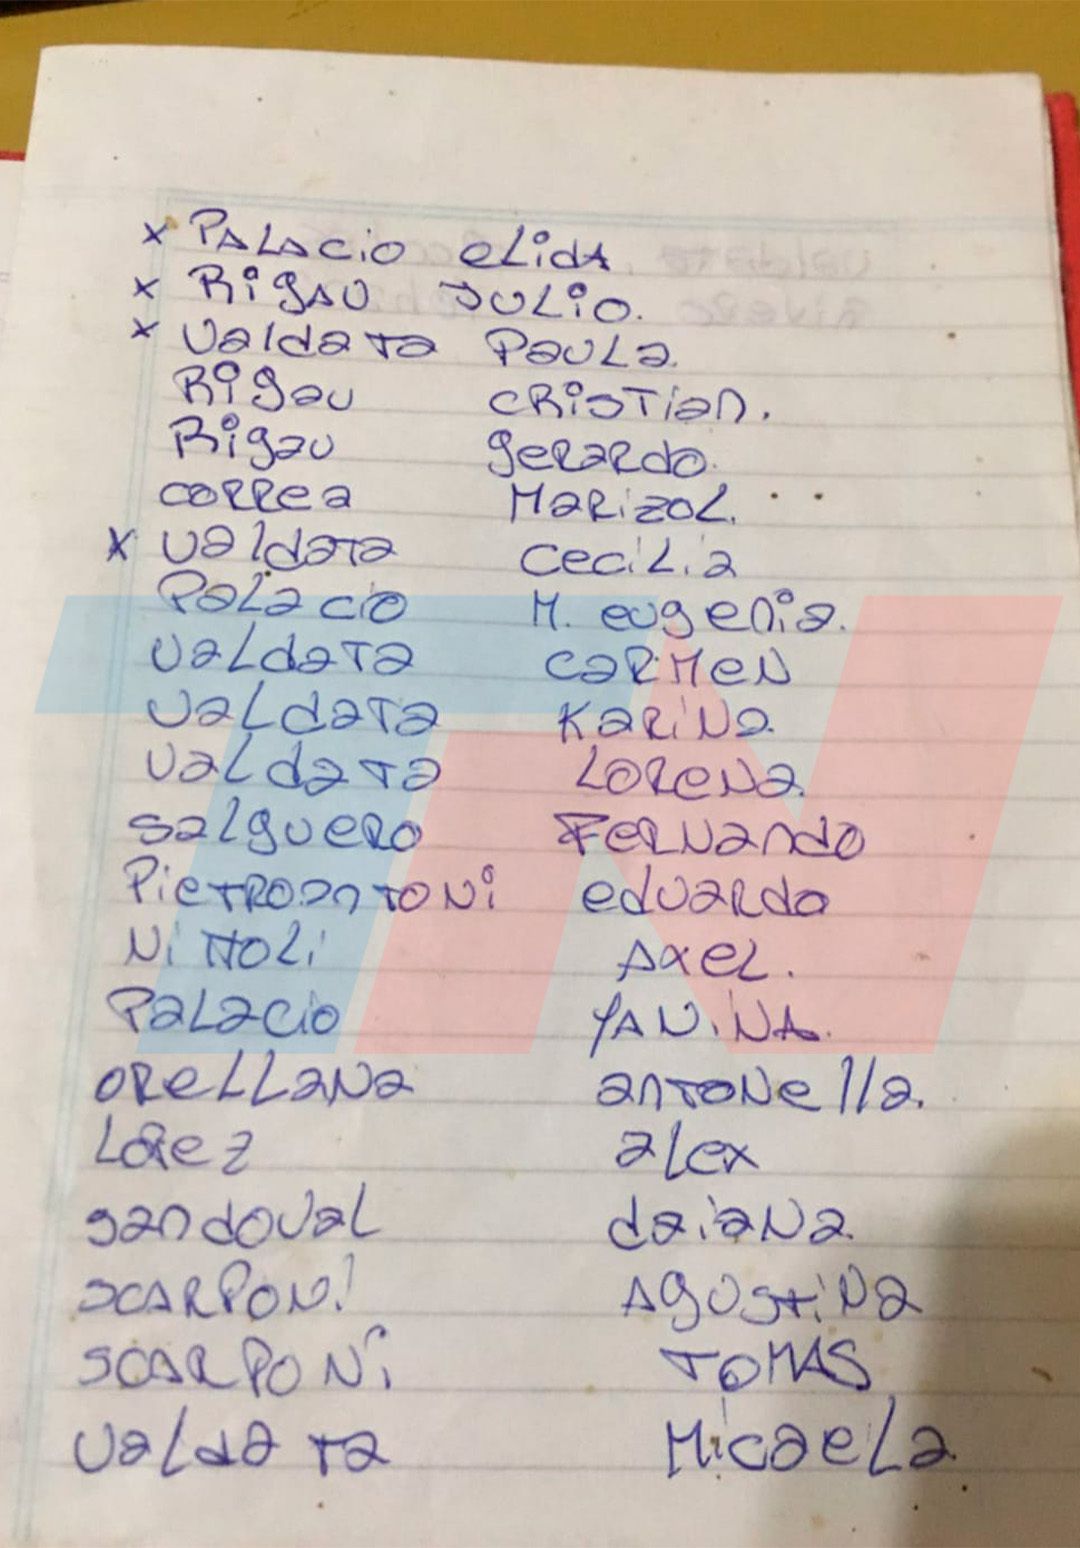 x PALACiO eLidA
x RigAU JULiO.
x Valdata PaULa.
Rigau CRisTian.
Rigau geRaRdo.
CORRea MaRizOL.
x Valdata CeciLia
PaLacio M. eugenia.
VaLdaTa CaRMeN
VaLdaTa KaRiNa.
VaLdaTa LOReNa.
SaLgueRO FeRNando
PieTROanTONi edUaRdo
NittOLi AxeL.
PaLacio YANiNA.
OReLLaNa anTONella.
alex
sandoVaL daiaNa.
SCARPONi AgUstiNa
SCARPONi TOMAS
VaLdaTa MicaeLa
TN